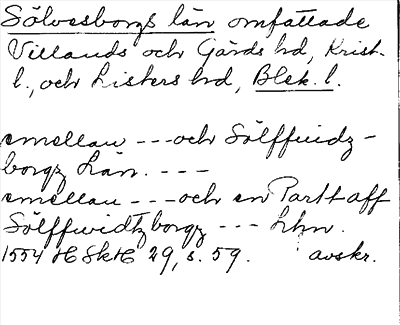 Sölvesborgs län omfattade
Villands och Gärds hd, Krist.
l., och Listers hd, Blek. l.
emellan --- och Sölffuidz-
borgz Län. ---
emellan --- och en Partt aff
Sölffwidtzborgz --- Lhn.
1554 HSkH 29, s. 59. avskr.